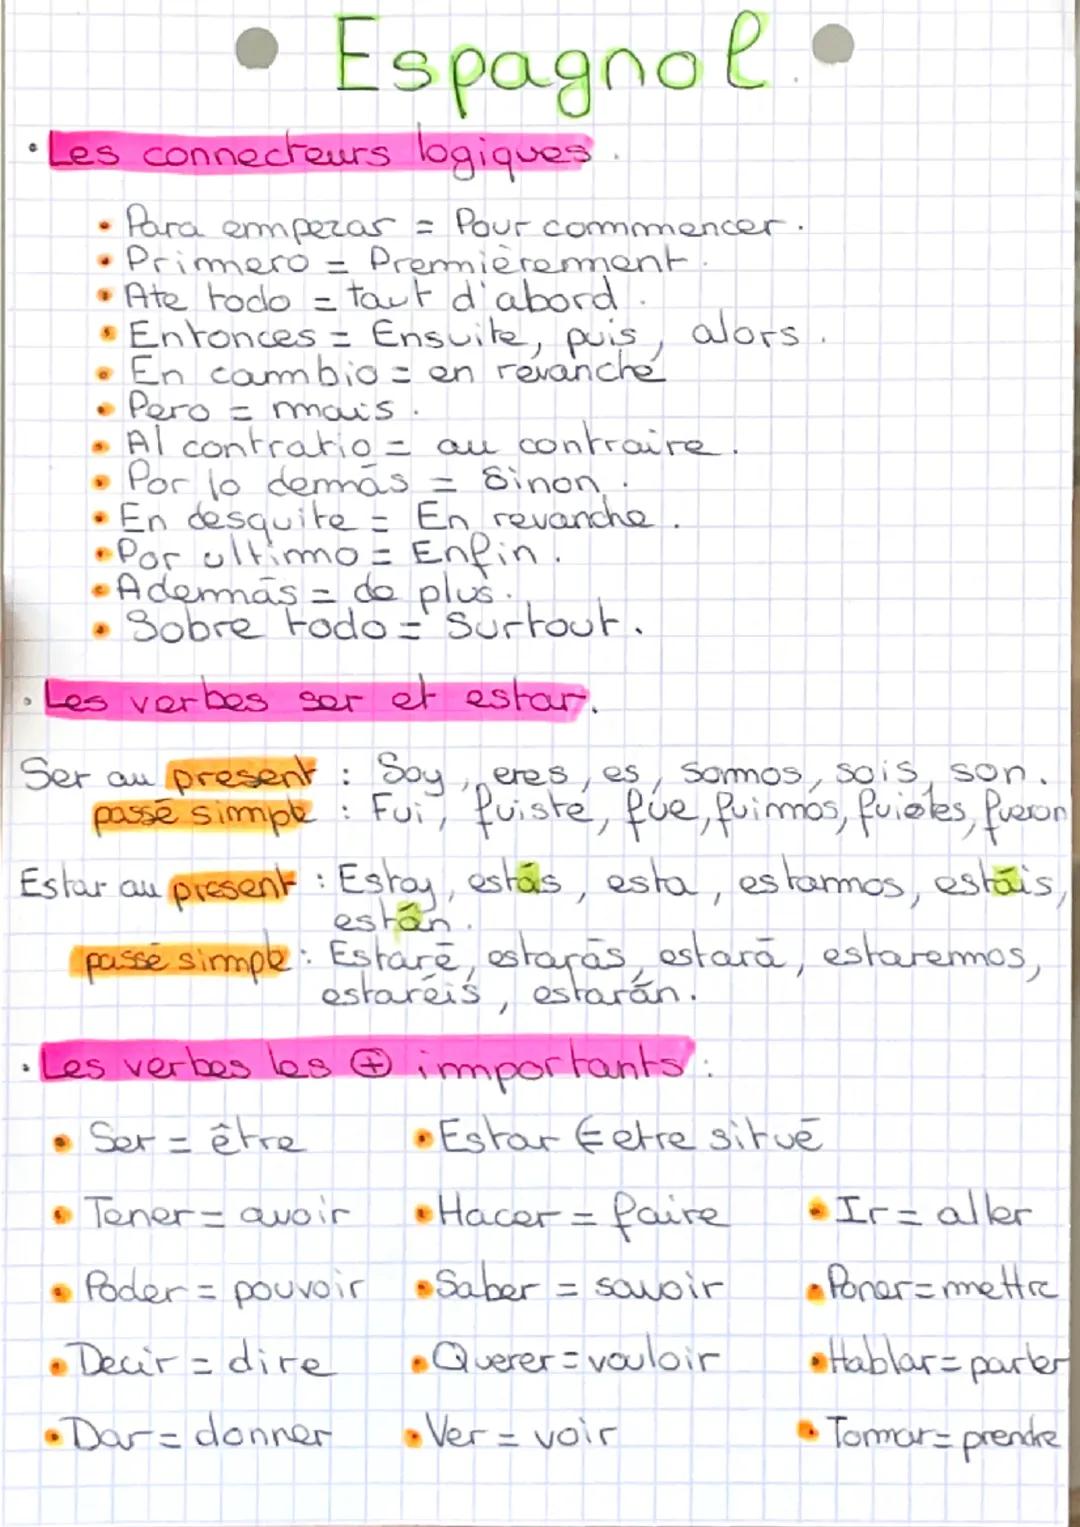 Espagnol
• Les connecteurs logiques.
• Para empezar = Pour commencer.
• Primero = Premièrement.
• Ate todo = tout d'abord.
• Entonces = Ensuite, puis, alors.
• En cambio = en revanche
• Pero = mais.
• Al contratio = au contraire.
• Por lo demás = Sinon.
• En desquite = En revanche.
• Por ultimo = Enfin.
• Además = de plus.
• Sobre todo = Surtout.
• Les verbes ser et estar.
Ser au present : Soy, eres, es, somos, sois, son.
passé simple : Fui, fuiste, fúe, fuimos, fuistes, fueron
Estar au present : Estoy, estás, esta, estamos, estáis,
están.
passé simple : Estaré, estarás, estará, estaremos,
estaréis, estarán.
• Les verbes les ⊕ importants :
• Ser = être • Estar = etre situé
• Tener = avoir • Hacer = faire • Ir = aller
• Poder = pouvoir • Saber = savoir • Poner = mettre
• Decir = dire • Querer = vouloir • Hablar = parler
• Dar = donner • Ver = voir • Tomar = prendre